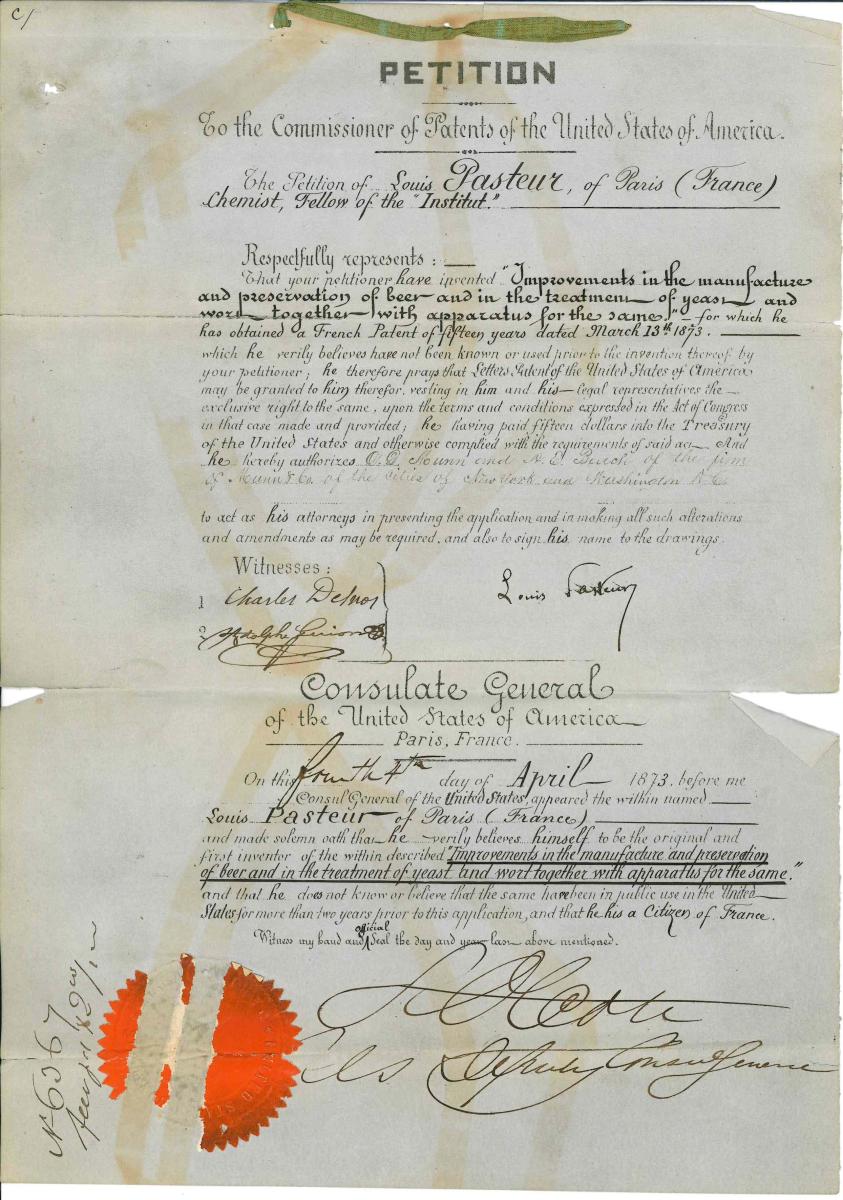 C/
PETITION
To the Commissioner of Patents of the United States of America.
The Petition of Louis Pasteur, of Paris (France)
Chemist, Fellow of the "Institut."
Respectfully represents :
That your petitioner have invented "Improvements in the manufacture
and preservation of beer and in the treatment of yeast and
wort together with apparatus for the same" for which he
has obtained a French Patent of fifteen years dated March 13th 1873.
which he verily believes have not been known or used prior to the invention thereof by
your petitioner; he therefore prays that Letters Patent of the United States of America
may be granted to him therefor, vesting in him and his legal representatives the
exclusive right to the same, upon the terms and conditions expressed in the Act of Congress
in that case made and provided; he having paid fifteen dollars into the Treasury
of the United States and otherwise complied with the requirements of said act. And
he hereby authorizes O. D. Munn and A. E. Beach of the firm
of Munn & Co. of the Cities of New York and Washington D.C.
to act as his attorneys in presenting the application and in making all such alterations
and amendments as may be required, and also to sign his name to the drawings.
Witnesses :
1 Charles Desnos
Louis Pasteur
2 Adolphe
Consulate General
of the United States of America
Paris, France.
On this fourth 4th day of April 1873. before me
Consul General of the United States, appeared the within named
Louis Pasteur of Paris (France)
and made solemn oath that he verily believes himself to be the original and
first inventor of the within described "Improvements in the manufacture and preservation
of beer and in the treatment of yeast and wort together with apparatus for the same."
and that he does not know or believe that the same have been in public use in the United
States for more than two years prior to this application, and that he his a Citizen of France.
Witness my hand and official Seal the day and year last above mentioned.
Deputy Consul General
No 6367